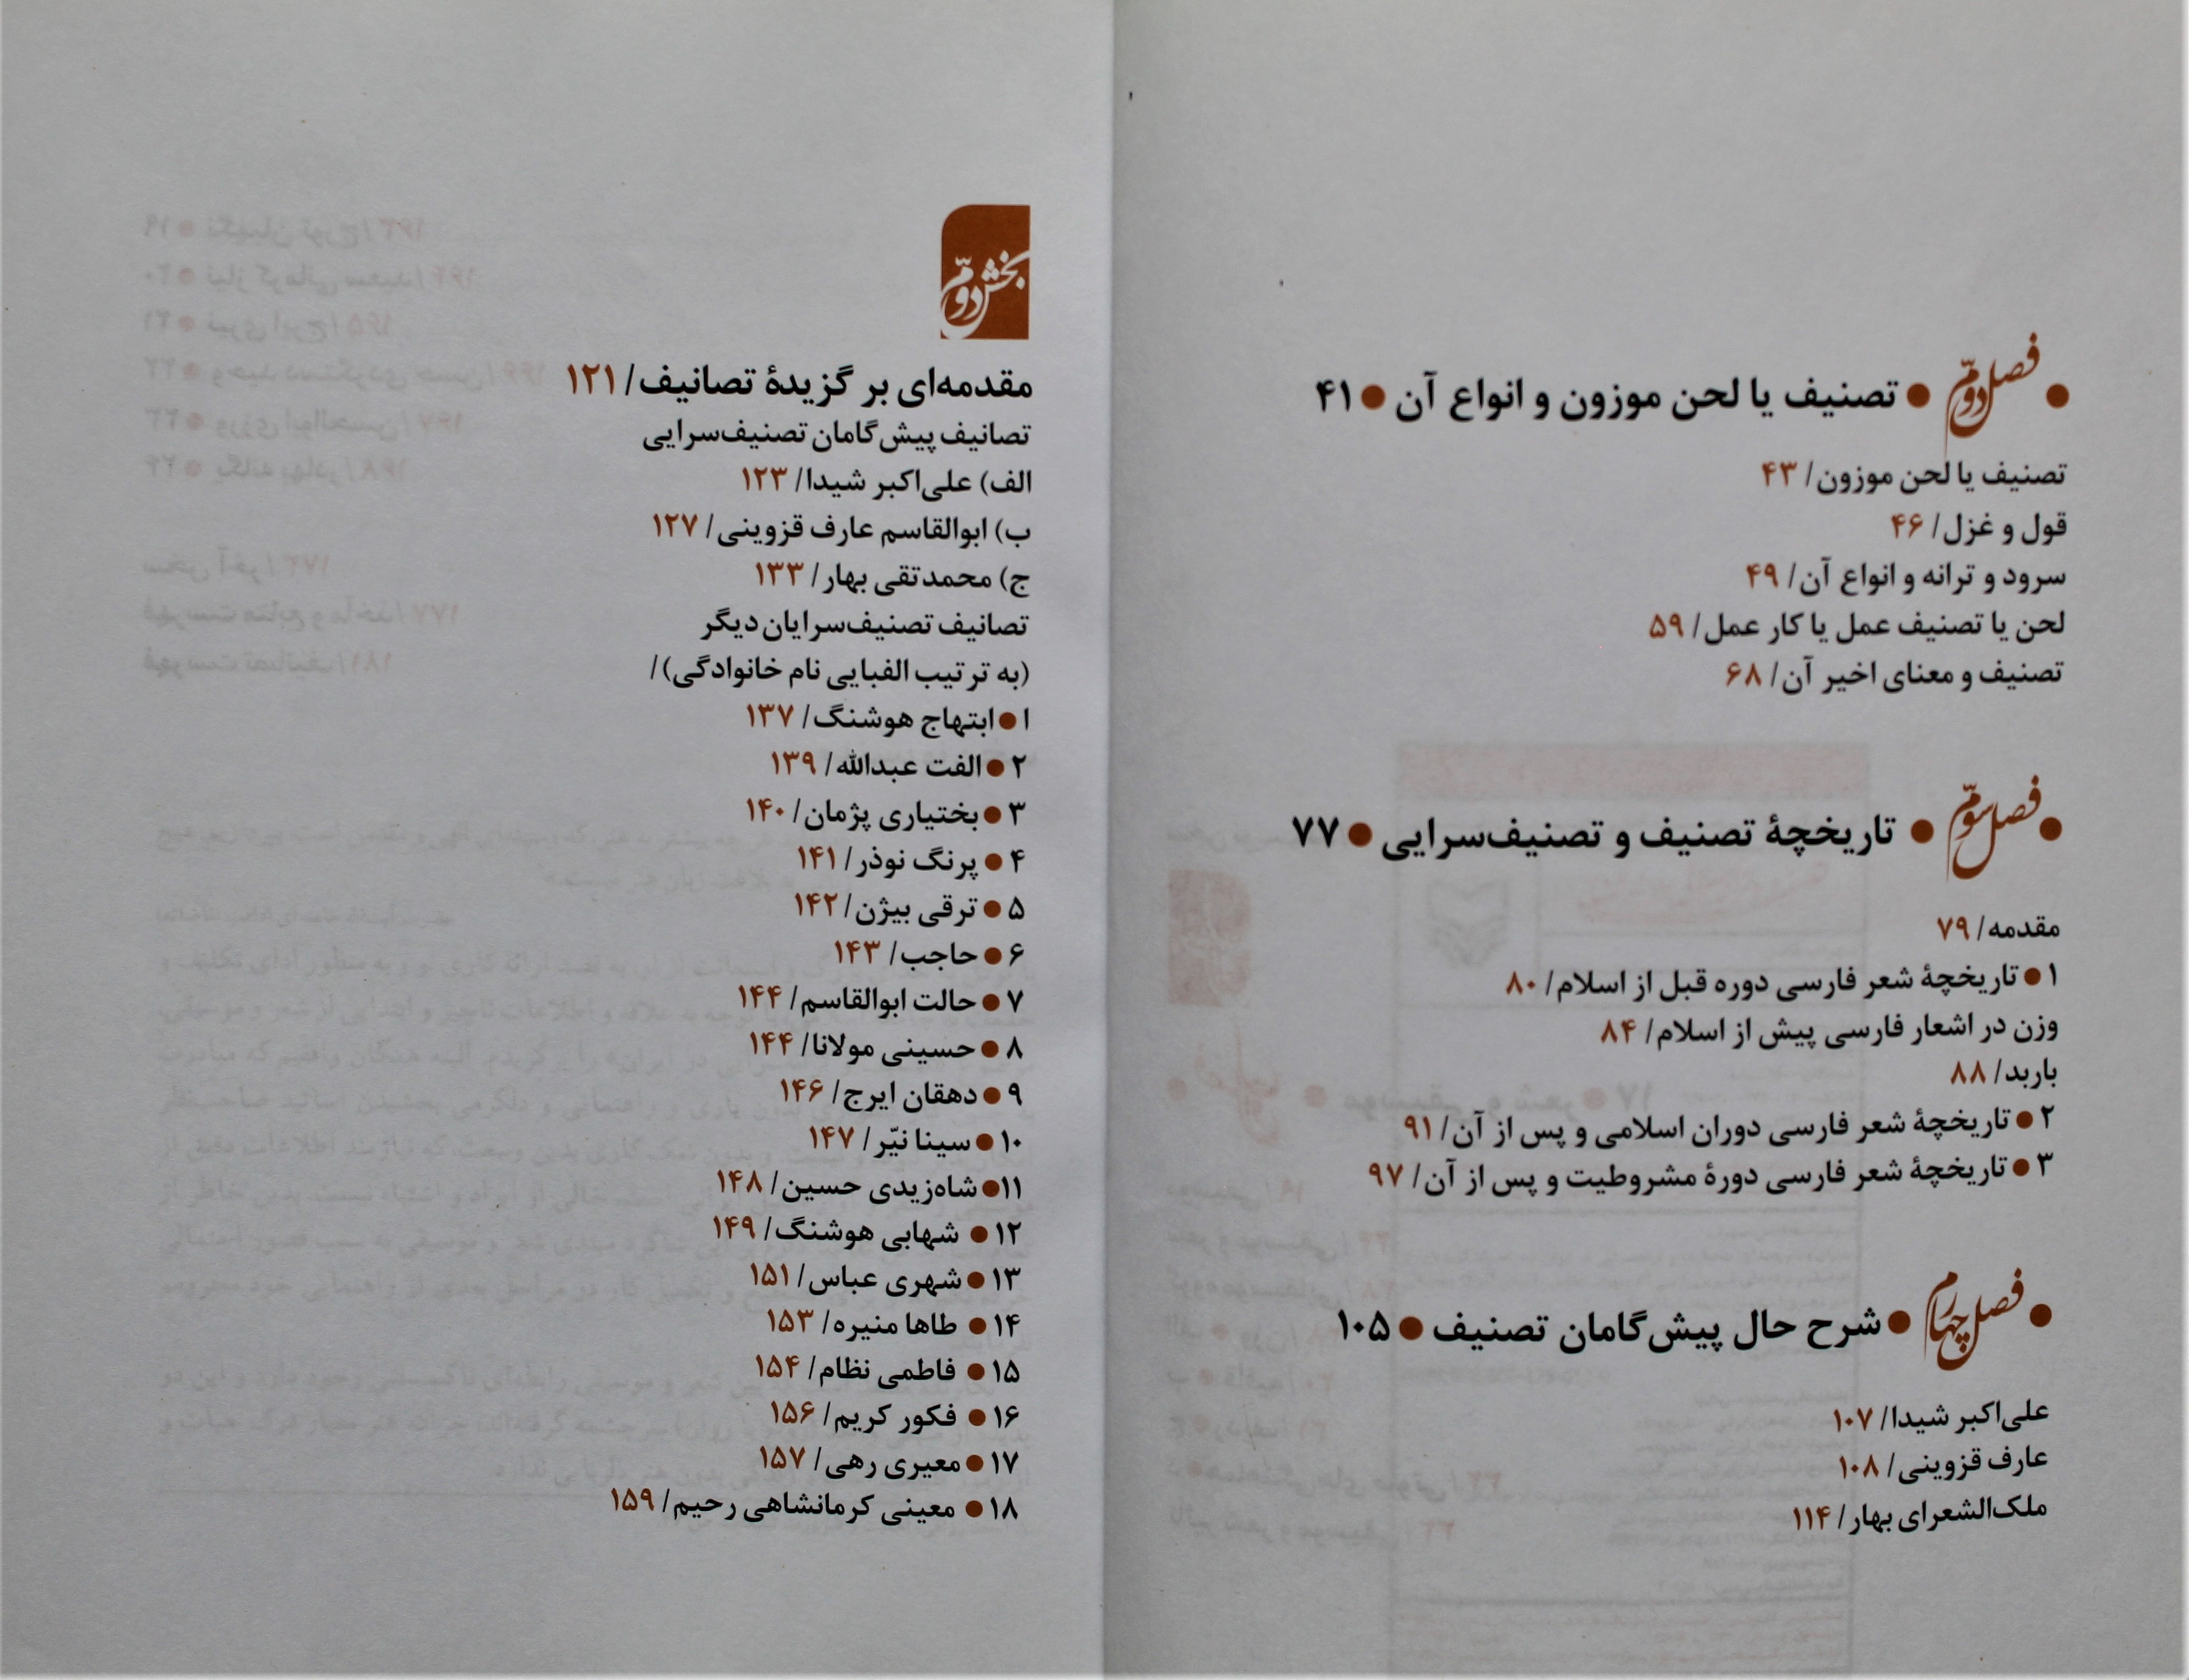 فصل دوّم ● تصنیف یا لحن موزون و انواع آن ● ۴۱
تصنیف یا لحن موزون/ ۴۳
قول و غزل/ ۴۶
سرود و ترانه و انواع آن/ ۴۹
لحن یا تصنیف عمل یا کار عمل/ ۵۹
تصنیف و معنای اخیر آن/ ۶۸
فصل سوّم ● تاریخچهٔ تصنیف و تصنیف‌سرایی ● ۷۷
مقدمه/ ۷۹
۱ ● تاریخچهٔ شعر فارسی دوره قبل از اسلام/ ۸۰
وزن در اشعار فارسی پیش از اسلام/ ۸۴
باربد/ ۸۸
۲ ● تاریخچهٔ شعر فارسی دوران اسلامی و پس از آن/ ۹۱
۳ ● تاریخچهٔ شعر فارسی دورهٔ مشروطیت و پس از آن/ ۹۷
فصل چهارم ● شرح حال پیش‌گامان تصنیف ● ۱۰۵
علی‌اکبر شیدا/ ۱۰۷
عارف قزوینی/ ۱۰۸
ملک‌الشعرای بهار/ ۱۱۴
بخش دوّم
مقدمه‌ای بر گزیدهٔ تصانیف/ ۱۲۱
تصانیف پیش‌گامان تصنیف‌سرایی
الف) علی‌اکبر شیدا/ ۱۲۳
ب) ابوالقاسم عارف قزوینی/ ۱۲۷
ج) محمدتقی بهار/ ۱۳۳
تصانیف تصنیف‌سرایان دیگر
(به ترتیب الفبایی نام خانوادگی)/
۱ ● ابتهاج هوشنگ/ ۱۳۷
۲ ● الفت عبدالله/ ۱۳۹
۳ ● بختیاری پژمان/ ۱۴۰
۴ ● پرنگ نوذر/ ۱۴۱
۵ ● ترقی بیژن/ ۱۴۲
۶ ● حاجب/ ۱۴۳
۷ ● حالت ابوالقاسم/ ۱۴۴
۸ ● حسینی مولانا/ ۱۴۴
۹ ● دهقان ایرج/ ۱۴۶
۱۰ ● سینا نیّر/ ۱۴۷
۱۱ ● شاه‌زیدی حسین/ ۱۴۸
۱۲ ● شهابی هوشنگ/ ۱۴۹
۱۳ ● شهری عباس/ ۱۵۱
۱۴ ● طاها منیره/ ۱۵۳
۱۵ ● فاطمی نظام/ ۱۵۴
۱۶ ● فکور کریم/ ۱۵۶
۱۷ ● معیری رهی/ ۱۵۷
۱۸ ● معینی کرمانشاهی رحیم/ ۱۵۹